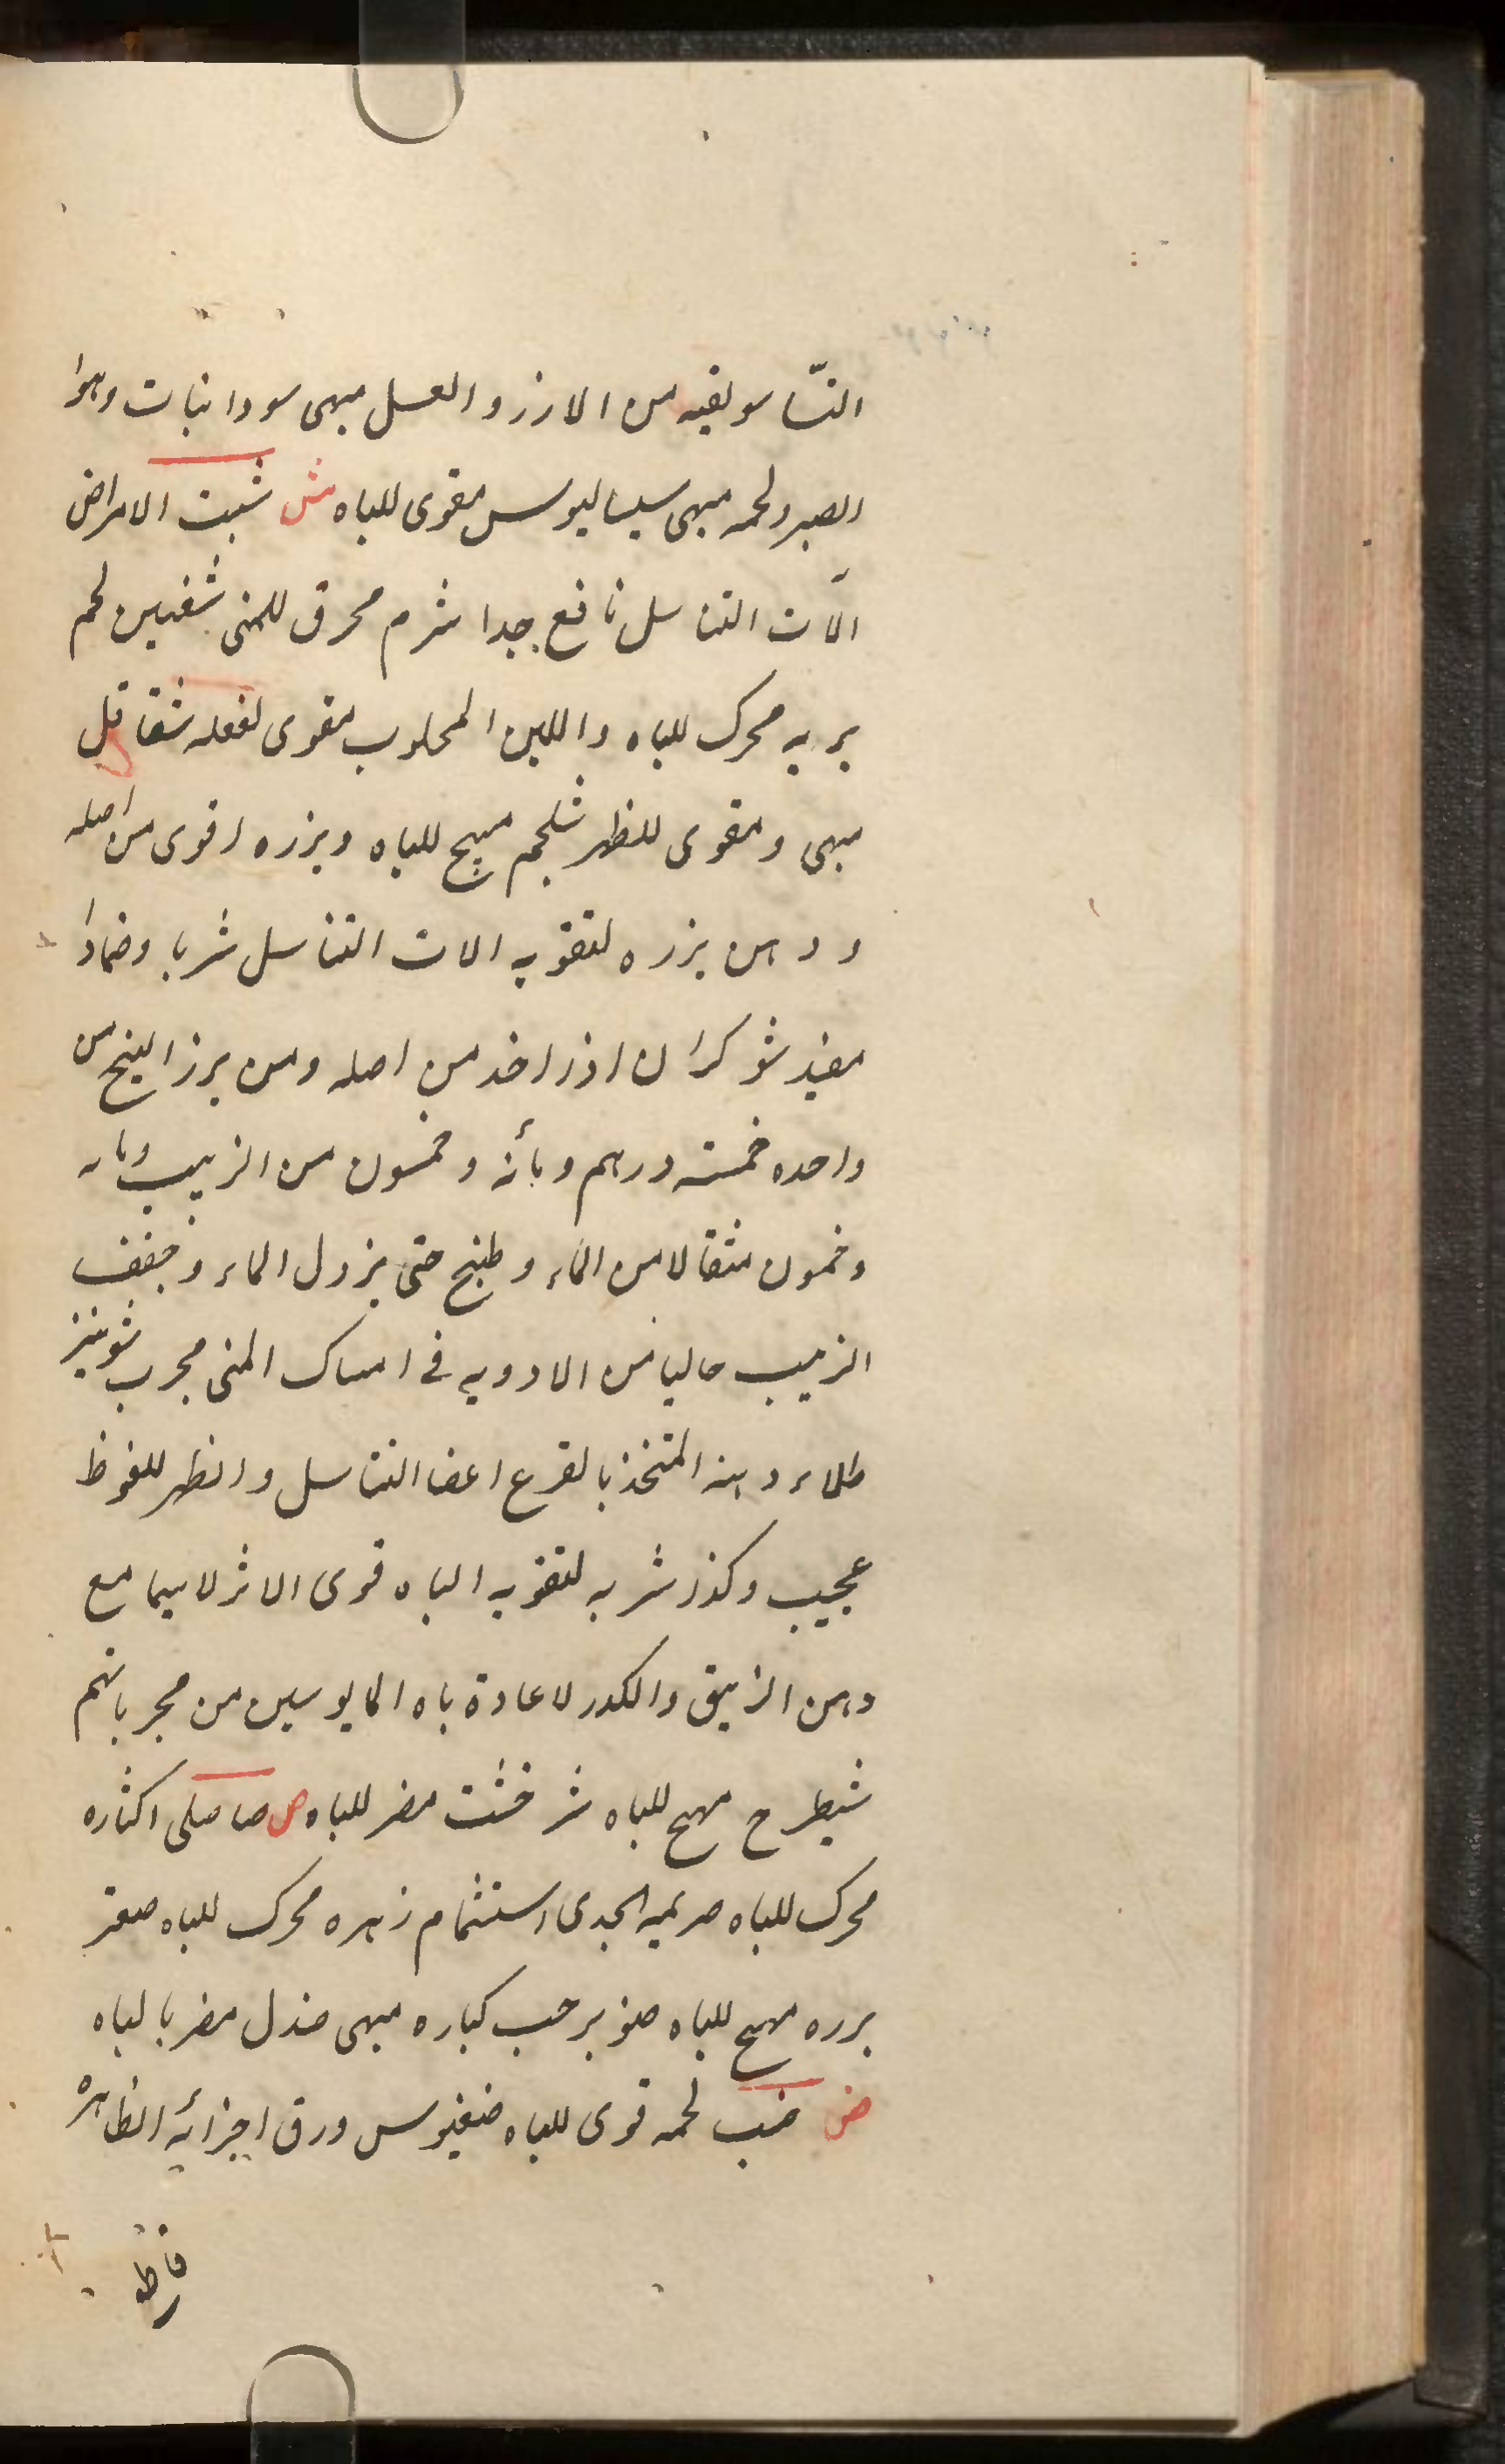 النسا سويقيه من الارز و العسل مبهى سودانيات وهوا
الصبر ولحمه مبهى سيساليوس مقوى للباه ش شبت الامراض
الآت التناسل نافع جدا شرم محرق للمنى شفنين لحم
بريه محرك للباه واللبن المحلوب مقوى لفعله شقاقل
مبهى ومقوى للظهر شلجم مهيج للباه وبزره اقوى من اصله
ودهن بزره لتقويه الات التناسل شربا وضمادا
مفيد شوكران اذا اخذ من اصله ومن برز البنج من
واحده خمسة درهم ومأئه وخمسون من الزبيب ومائه
وخمسون مثقالا من الماء وطبخ حتى يزول الماء وجفف
الزبيب خاليا من الادويه فى امساك المنى مجرب شونيز
طلاء دهنه المتخذ بالقرع اعضا التناسل والظهر للنعوظ
عجيب وكذا شربه لتقويه الباه قوى الاثر لاسيما مع
دهن الزيبق والكدر لاعادة باه المايوسين من مجرباتهم
شيطرج مهيج للباه شرخشت مضر للباه ص صاصلى اكثاره
محرك للباه صريمه الجدى استشمام زهره محرك للباه صعتر
برزه مهيج للباه صنوبر حب كباره مبهى صندل مضر بالباه
ض ضب لحمه قوى للباه ضغنيوس ورق اجزائه الظاهرة